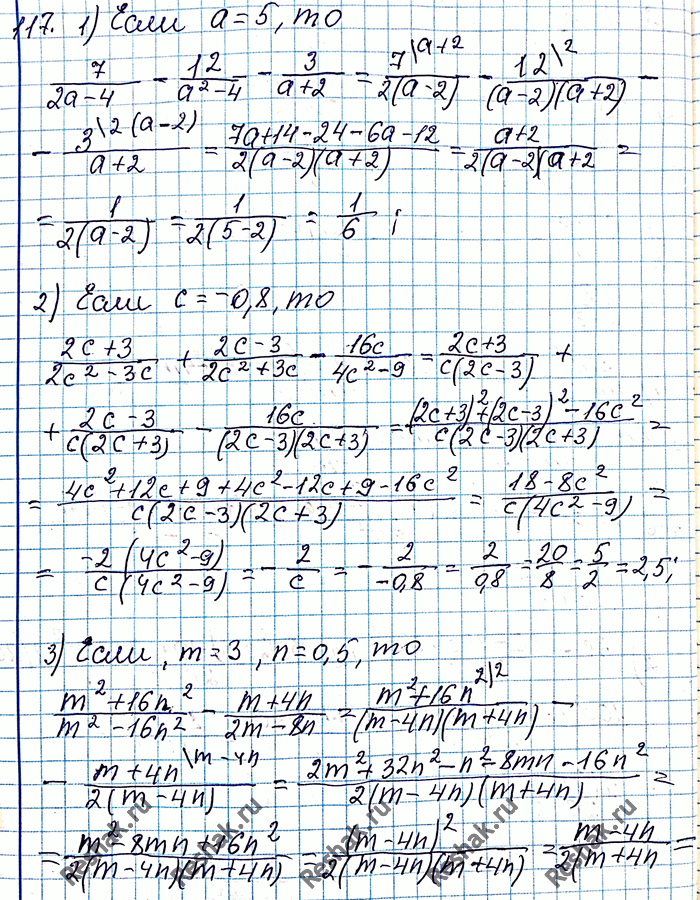 117. 1) Если a = 5, то
7/(2a-4) - 12/(a²-4) - 3/(a+2) = 7\a+2/(2(a-2)) - 12\2/((a-2)(a+2)) -
- 3\2(a-2)/(a+2) = (7a+14-24-6a-12)/(2(a-2)(a+2)) = (a+2)/(2(a-2)(a+2 =
= 1/(2(a-2)) = 1/(2(5-2)) = 1/6 ;
2) Если c = -0,8, то
(2c+3)/(2c²-3c) + (2c-3)/(2c²+3c) - 16c/(4c²-9) = (2c+3)/(c(2c-3)) +
+ (2c-3)/(c(2c+3)) - 16c/((2c-3)(2c+3)) = ((2c+3)²+(2c-3)²-16c²)/(c(2c-3)(2c+3)) =
= (4c²+12c+9+4c²-12c+9-16c²)/(c(2c-3)(2c+3)) = (18-8c²)/(c(4c²-9)) =
= -2(4c²-9)/(c(4c²-9)) = -2/c = -2/(-0,8) = 2/0,8 = 20/8 = 5/2 = 2,5;
3) Если, m = 3, n = 0,5, то
(m²+16n²)/(m²-16n²) - (m+4n)/(2m-8n) = m²+16n²\2/((m-4n)(m+4n)) -
- m+4n\m-4n/(2(m-4n)) = (2m²+32n²-n²-8mn-16n²)/(2(m-4n)(m+4n)) =
= (m²-8mn+16n²)/(2(m-4n)(m+4n)) = (m-4n)²/(2(m-4n)(m+4n)) = (m-4n)/(2(m+4n =
Reshak.ru Reshak.ru Reshak.ru Reshak.ru Reshak.ru